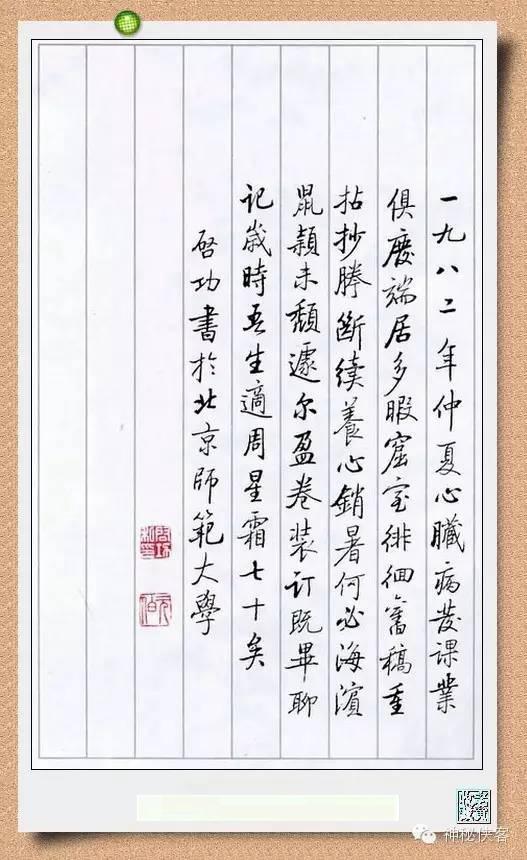 一九八二年仲夏心臟病發課業
俱廢端居多暇窟室徘徊舊稿重
拈抄謄斷續養心銷暑何必海濱
鼠穎未頹遽尔盈卷装订既畢聊
记歲時吾生適周星霜七十矣
啓功書於北京師範大學
神秘侠客